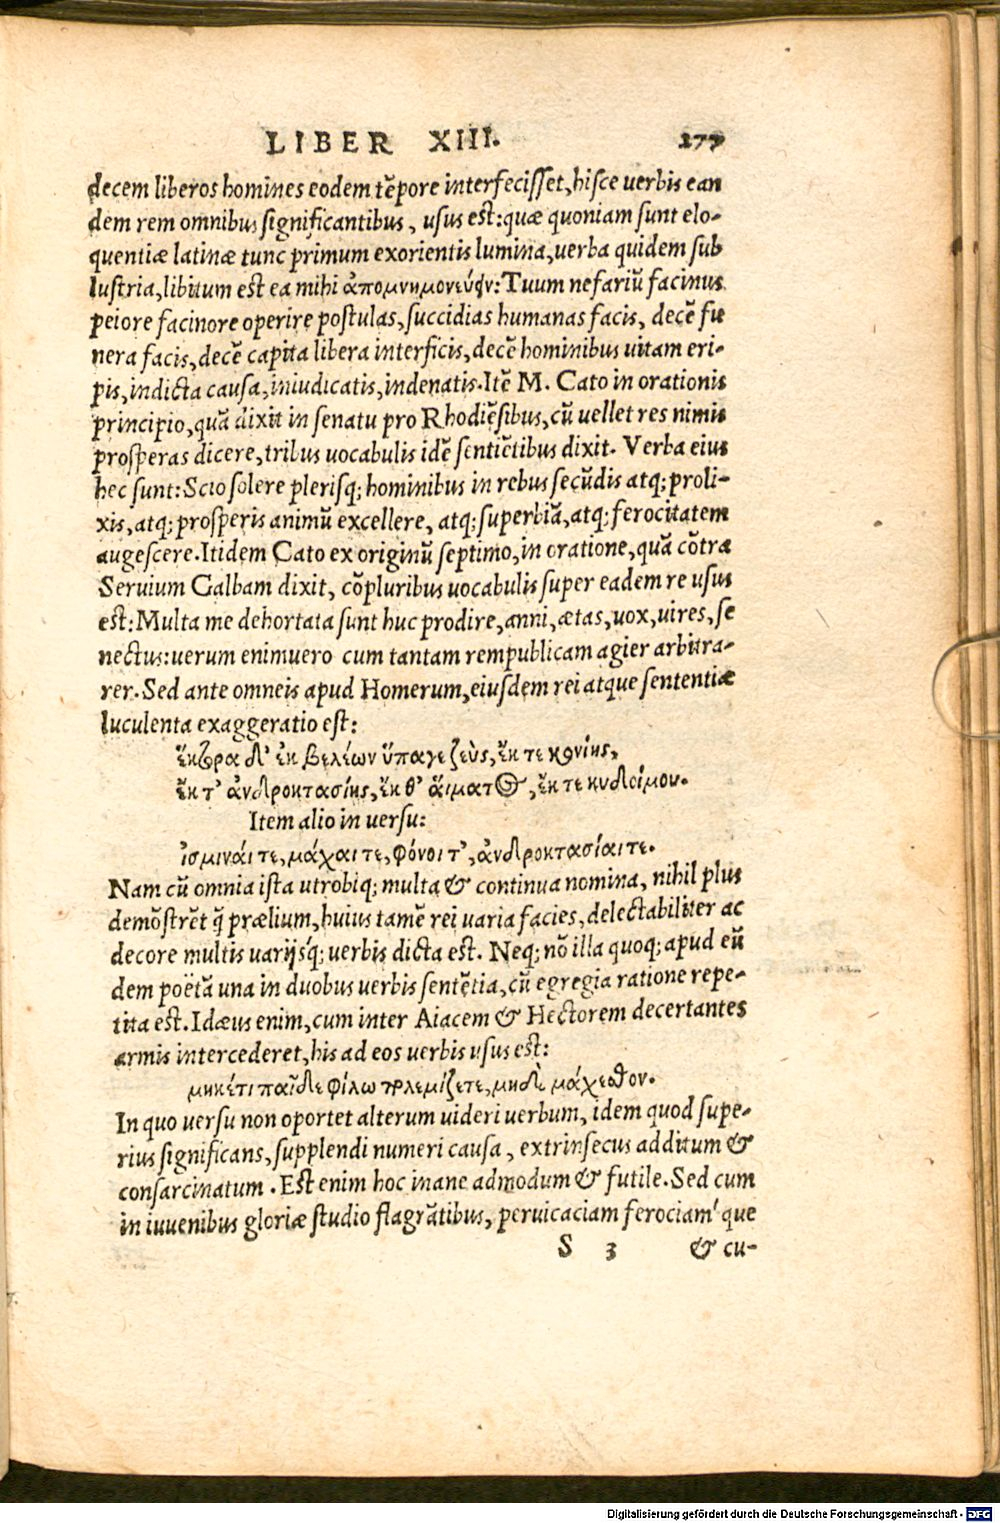 LIBER XIII. 277
decem liberos homines eodem tẽpore interfecisset, hisce verbis ean
dem rem omnibus significantibus, usus est: quæ quoniam sunt elo-
quentiæ latinæ tunc primum exorientis lumina, verba quidem sub
lustria, libitum est ea mihi ἀπομνημονεύειν: Tuum nefariũ facinus
peiore facinore operire postulas, succidias humanas facis, decẽ fu
nera facis, decẽ capita libera interficis, decẽ hominibus uitam eri-
pis, indicta causa, iniudicatis, indenatis. Itẽ M. Cato in orationis
principio, quã dixit in senatu pro Rhodiẽsibus, cũ uellet res nimis
prosperas dicere, tribus uocabulis idẽ sentiẽtibus dixit. Verba eius
hec sunt: Scio solere plerisq; hominibus in rebus secũdis atq; proli-
xis, atq; prosperis animũ excellere, atq; superbiã, atq; ferocitatem
augescere. Itidem Cato ex originũ septimo, in oratione, quã cõtra
Seruium Galbam dixit, cõpluribus uocabulis super eadem re usus
est: Multa me dehortata sunt huc prodire, anni, ætas, uox, uires, se
nectus: uerum enimuero cum tantam rempublicam agier arbitra-
rer. Sed ante omneis apud Homerum, eiusdem rei atque sententiæ
luculenta exaggeratio est:
ἕκτορα δ' ἐκ βελέων ὕπαγε ζεὺς, ἔκ τε κονίης,
ἔκ τ' ἀνδροκτασίης, ἔκ θ' ἅιματος, ἔκ τε κυδοίμου.
Item alio in uersu:
ὑσμινάι τε, μάχαι τε, φόνοι τ', ἀνδροκτασίαι τε.
Nam cũ omnia ista utrobiq; multa & continua nomina, nihil plus
demõstrẽt q̃ prælium, huius tamẽ rei varia facies, delectabiliter ac
decore multis uarijsq́; uerbis dicta est. Neq; nõ illa quoq; apud eũ
dem poëtã una in duobus verbis sentẽtia, cũ egregia ratione repe-
tita est. Idæus enim, cum inter Aiacem & Hectorem decertantes
armis intercederet, his ad eos uerbis usus est:
μηκέτι παῖδε φίλω πολεμίζετε, μηδὲ μάχεσθον.
In quo uersu non oportet alterum uideri uerbum, idem quod supe-
rius significans, supplendi numeri causa, extrinsecus additum &
consarcinatum. Est enim hoc inane admodum & futile. Sed cum
in iuuenibus gloriæ studio flagrãtibus, peruicaciam ferociam´que
S 3 & cu-
Digitalisierung gefördert durch die Deutsche Forschungsgemeinschaft - DFG